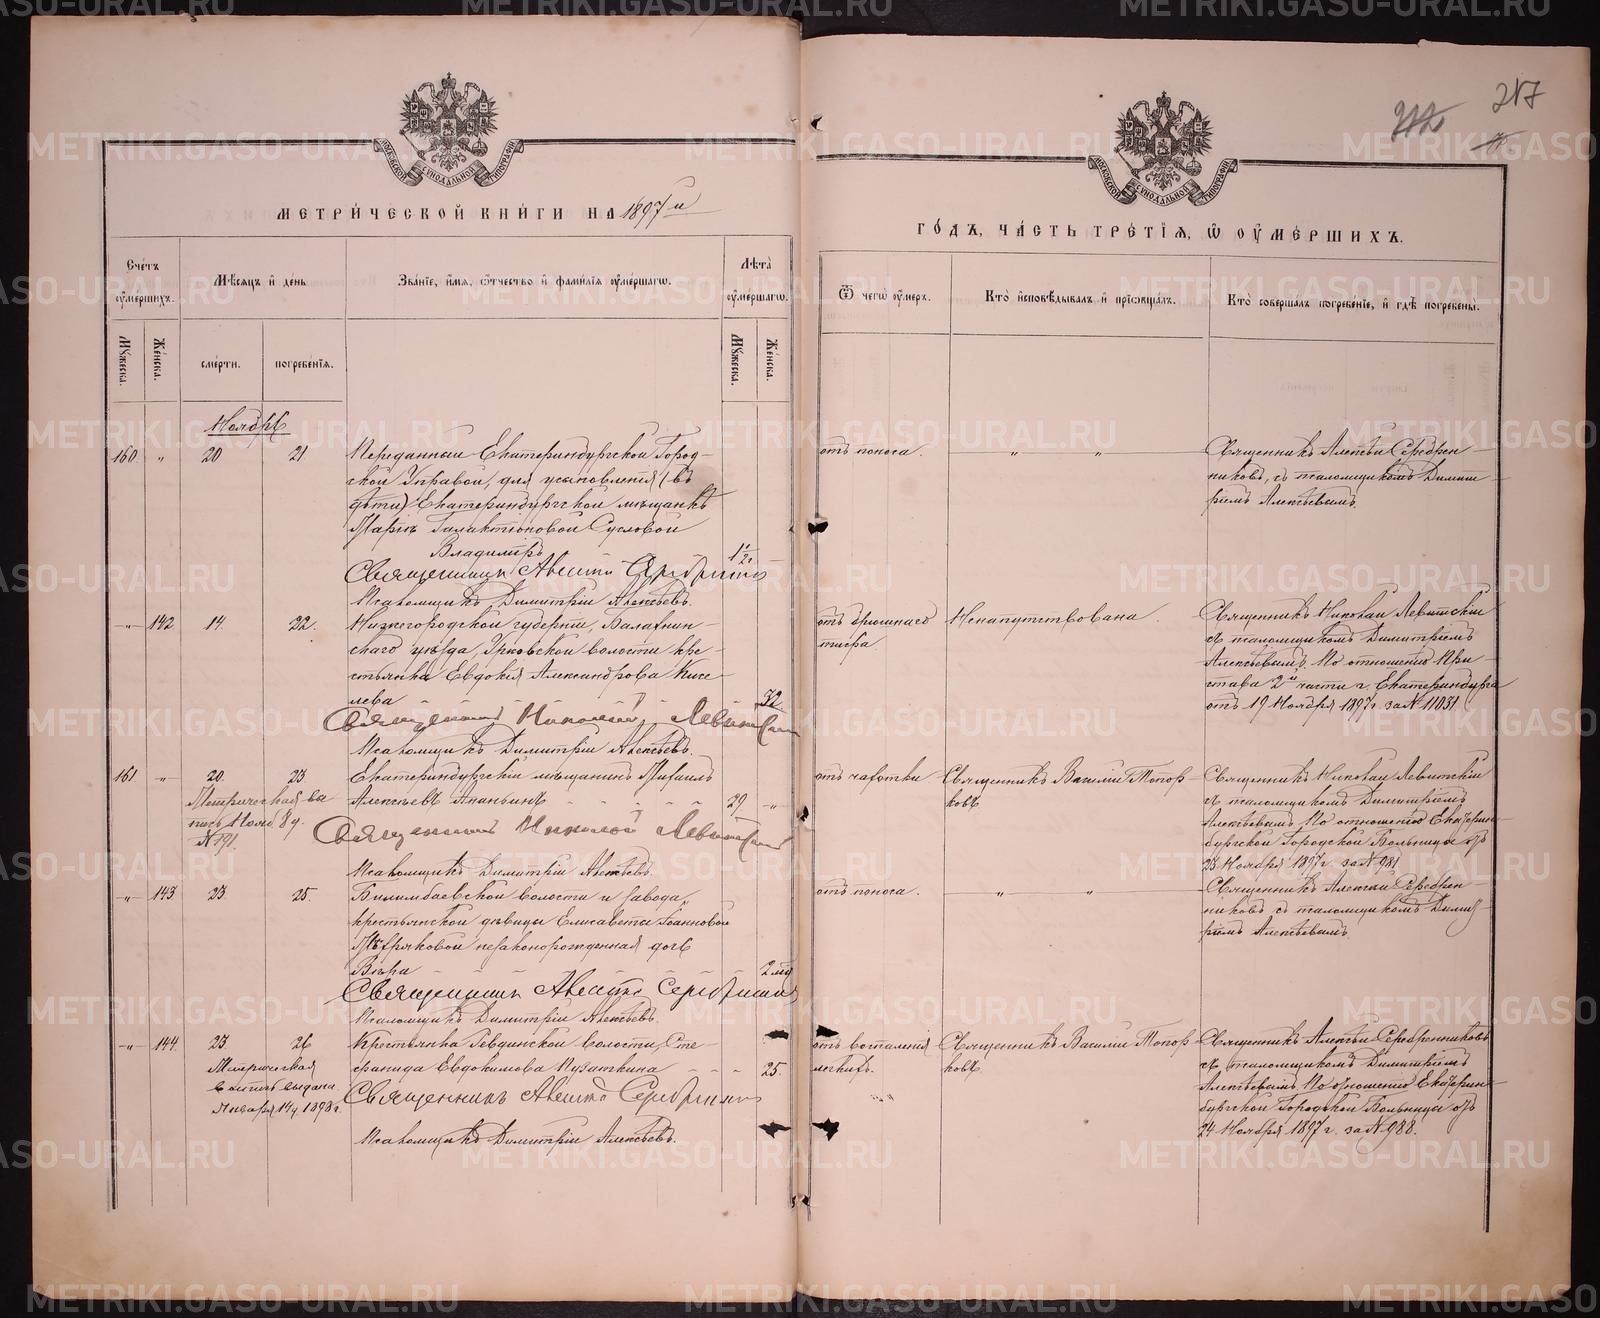 МЕТРИЧЕСКОЙ КНИГИ НА 1897й
ГОДЪ, ЧАСТЬ ТРЕТІЯ, Ѿ ОУМЕРШИХЪ.
Счетъ оумершихъ.
Мѣсяцъ и день
Званіе, имя, отчество и фамилія оумершагѡ.
Лѣта оумершагѡ.
Ѿ чегѡ оумеръ.
Кто исповѣдывалъ и пріобщалъ.
Кто совершалъ погребеніе, и гдѣ погребены.
Мужеска.
Женска.
смерти.
погребенія.
Мужеска.
Женска.
Ноябрь
160 " 20 21
Переданный Екатеринбургской Город-
ской Управой, для усыновленія (въ
дѣти) Екатеринбургской мѣщанкѣ
Маріи Галактіоновой Сусловой
Владиміръ
1 1/2 г
Священникъ Алексѣй Серебренниковъ
Псаломщикъ Димитрій Алексѣевъ.
отъ поноса.
" "
Священникъ Алексѣй Серебрен-
никовъ, съ псаломщикомъ Димит-
ріемъ Алексѣевымъ.
" 142 14. 22.
Нижегородской губерніи, Балахнин-
скаго уѣзда, Юрковской волости кре-
стьянка Евдокія Александрова Кисе-
лева
32
Священникъ Николай Левитскій
Псаломщикъ Димитрій Алексѣевъ.
отъ брюшнаго
тифа.
Ненапутствована.
Священникъ Николай Левитскій
съ псаломщикомъ Димитріемъ
Алексѣевымъ. По отношенію При-
става 2й части г. Екатеринбурга
отъ 19 Ноября 1897 г. за № 11031.
161. " 20. 23
Метрическая вы-
пись
№ 791.
Екатеринбургскій мѣщанинъ Михаилъ
Алексѣевъ Ананьинъ
29 "
Священникъ Николай Левитскій
Псаломщикъ Димитрій Алексѣевъ.
отъ чахотки
Священникъ Василій Топор-
ковъ
Священникъ Николай Левитскій
съ псаломщикомъ Димитріемъ
Алексѣевымъ. По отношенію Екатерин-
бургской Городской Больницы отъ
23 Ноября 1897 г. за № 981
" 143 23. 25.
Билимбаевской волости и завода,
крестьянской дѣвицы Елисаветы Іоанновой
незаконорожденная дочь
Вѣра
2 мѣс
Священникъ Алексѣй Серебренниковъ
Псаломщикъ Димитрій Алексѣевъ.
отъ поноса.
" "
Священникъ Алексѣй Серебрен-
никовъ съ псаломщикомъ Димит-
ріемъ Алексѣевымъ.
" 144. 23 26
Метрическая
выпись выдана
Января 14 д 1898 г.
Крестьянка Ревдинской волости, Сте-
фанида Евдокимова Пузаткина
25.
Священникъ Алексѣй Серебренниковъ
Псаломщикъ Димитрій Алексѣевъ.
отъ воспаленія
легкихъ.
Священникъ Василій Топор-
ковъ
Священникъ Алексѣй Серебренниковъ
съ псаломщикомъ Димитріемъ
Алексѣевымъ. По отношенію Екатерин-
бургской Городской Больницы отъ
24 Ноября 1897 г. за № 988.
METRIKI.GASO-URAL.RU